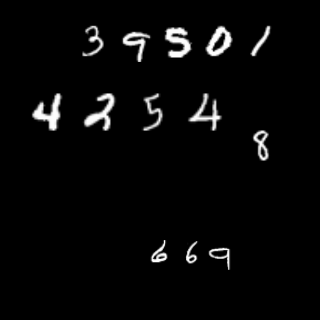 39501
4254
8
669